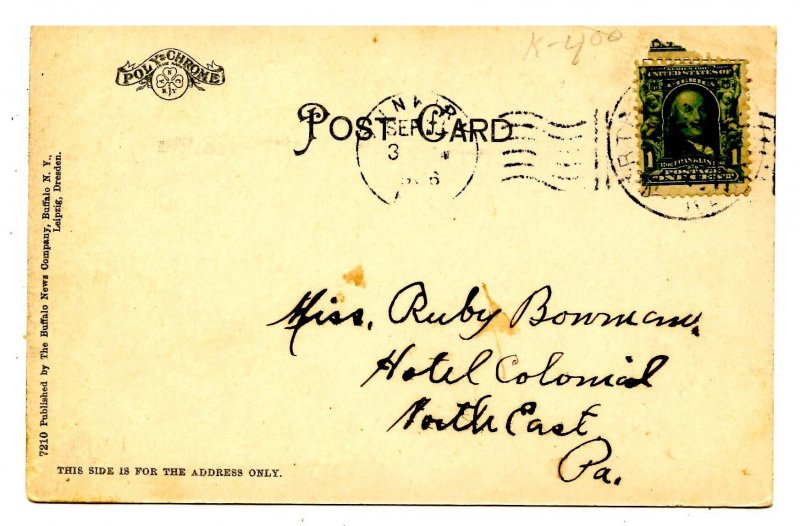 K-400
POLY-CHROME
POST CARD
SEP
3
6
SERIES 1902
UNITED STATES OF
AMERICA
1 FRANKLIN 1
POSTAGE
ONE CENT
7210 Published by The Buffalo News Company, Buffalo N. Y.,
Leipzig, Dresden.
Miss. Ruby Bowman.
Hotel Colonial
North East
Pa.
THIS SIDE IS FOR THE ADDRESS ONLY.